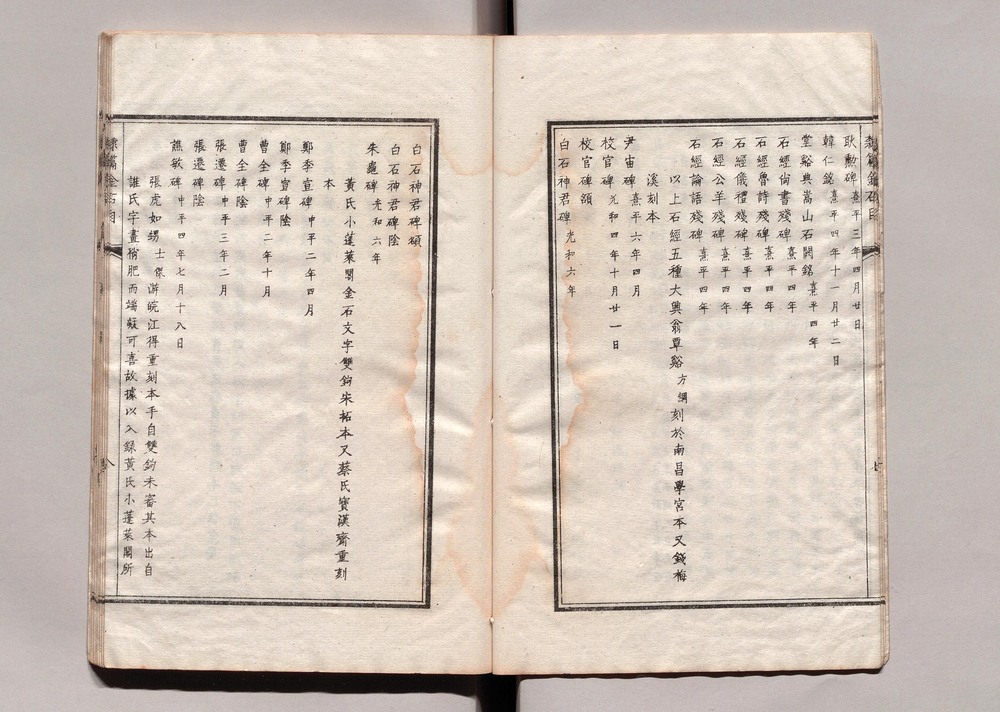 耿勳碑熹平三年四月廿日
韓仁銘熹平四年十一月廿二日
堂谿典嵩山石闕銘熹平四年
石經尚書殘碑熹平四年
石經魯詩殘碑熹平四年
石經儀禮殘碑熹平四年
石經公羊殘碑熹平四年
石經論語殘碑熹平四年
以上石經五種大興翁覃谿方綱刻於南昌學宮本又錢梅
溪刻本
尹宙碑熹平六年四月
校官碑光和四年十月廿一日
校官碑額
白石神君碑光和六年
白石神君碑額
白石神君碑陰
朱龜碑光和六年
黃氏小蓬萊閣金石文字雙鉤宋拓本又蔡氏寶漢齋重刻
本
鄭季宣碑中平二年四月
鄭季宣碑陰
曹全碑中平二年十月
曹全碑陰
張遷碑中平三年二月
張遷碑陰
譙敏碑中平四年七月十八日
張虎如甥士傑游皖江得重刻本手自雙鉤未審其本出自
誰氏字畫稍肥而端凝可喜故據以入錄黃氏小蓬萊閣所